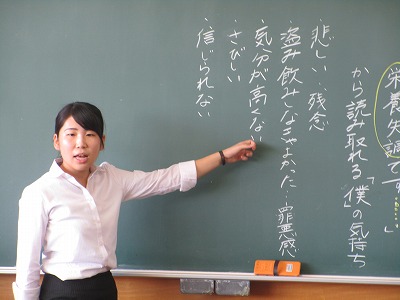 栄養失調です……」
から読み取れる「僕」の気持ち
・悲しい・残念
・盗み飲みしなきゃよかった…罪悪感
・気分が高くない
・さびしい
・信じられない